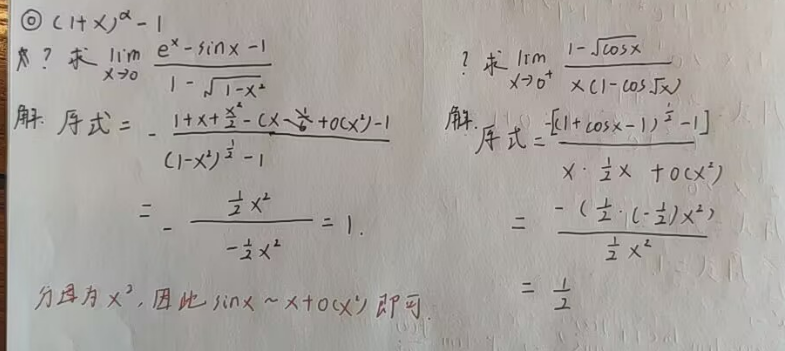 ◎ (1+x)^α - 1
? 求 lim x→0 (e^x - sinx - 1)/(1 - √(1-x²))
解. 原式 = - (1+x+x²/2 - (x + o(x²)) - 1)/((1-x²)^(1/2) - 1)
= - (½x²)/(-½x²) = 1.
分母为 x², 因此 sinx ~ x + o(x²) 即可.
? 求 lim x→0⁺ (1-√cosx)/(x(1-cos√x))
解. 原式 = -[(1+cosx-1)^(1/2) - 1]/(x·½x + o(x²))
= -(½·(-½)x²)/(½x²)
= ½